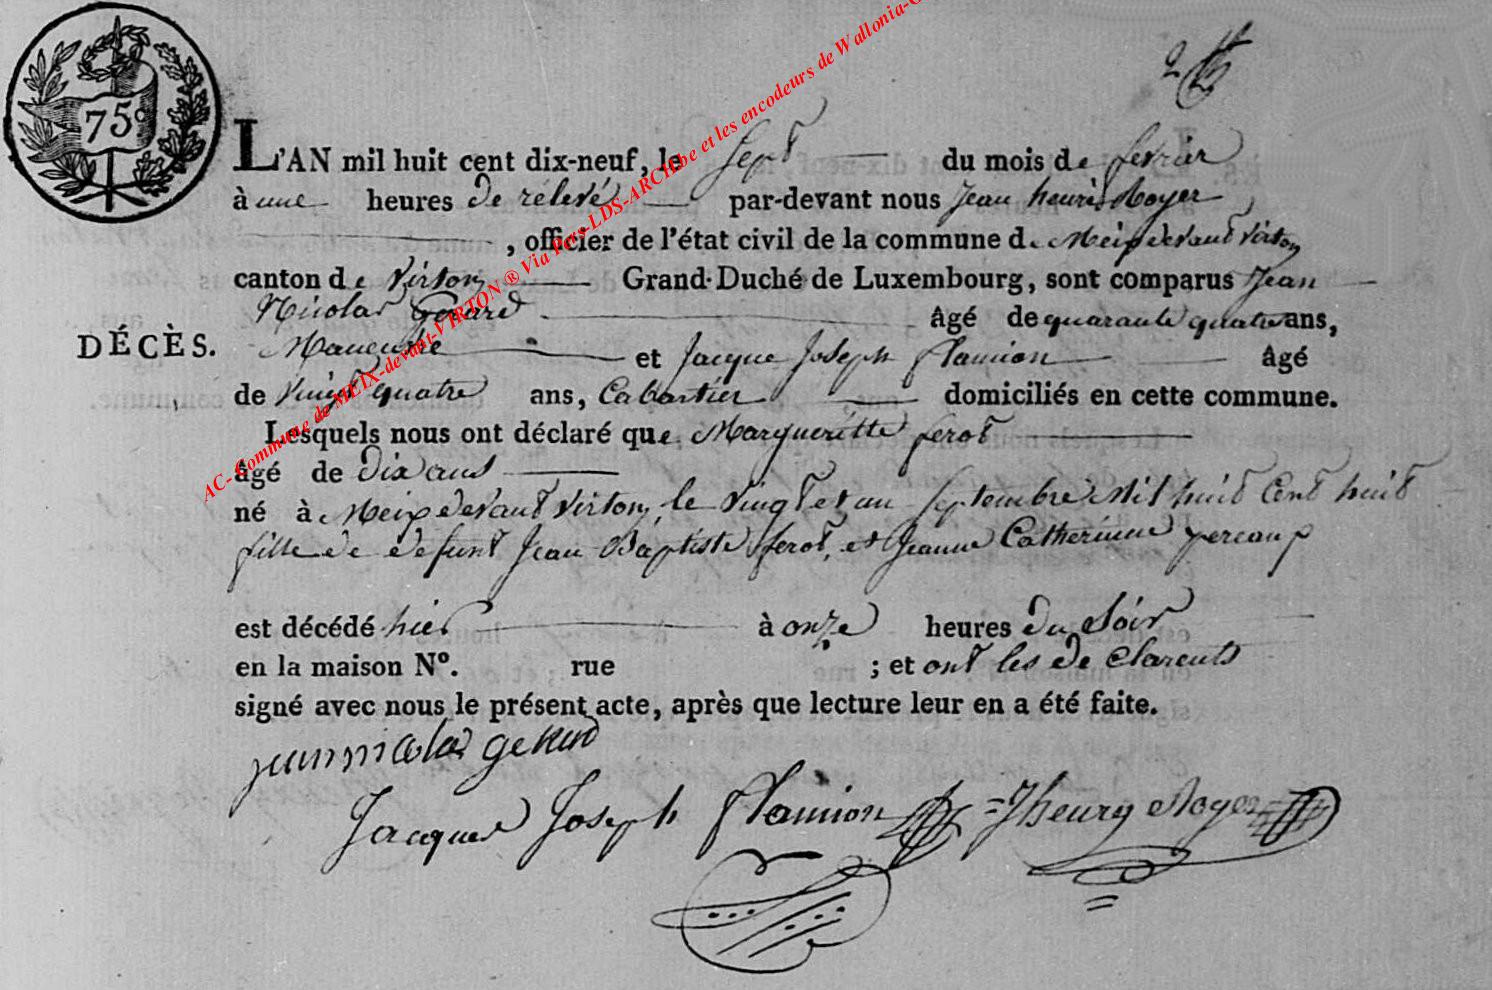 75c
L'AN mil huit cent dix-neuf, le Sept du mois de fevrier
à une heures de relevé par-devant nous Jean henri Noyer
, officier de l'état civil de la commune de Meix devant Virton
canton de Virton Grand-Duché de Luxembourg, sont comparus Jean
Nicolas Gerard âgé de quarante quatre ans,
DÉCÈS.
et Jacque Joseph flamion âgé
de vingt quatre ans, Cabartier domiciliés en cette commune.
Lesquels nous ont déclaré que Marguéritte ferot
âgé de dix ans
né à Meix devant Virton, le vingt et un Septembre Mil huit Cent huit
fille de defunt Jean Baptiste ferot, et Jeanne Catherinne
est décédé hier à onze heures du Soir
en la maison Nº. rue ; et ont les de Clarents
signé avec nous le présent acte, après que lecture leur en a été faite.
jean nicolas gerard
Jacques Joseph flamion Jhenry Noyer
AC- Commune de MEIX-devant-VIRTON ® Via Pers-LDS-ARCH.be et les encodeurs de Wallonia-G